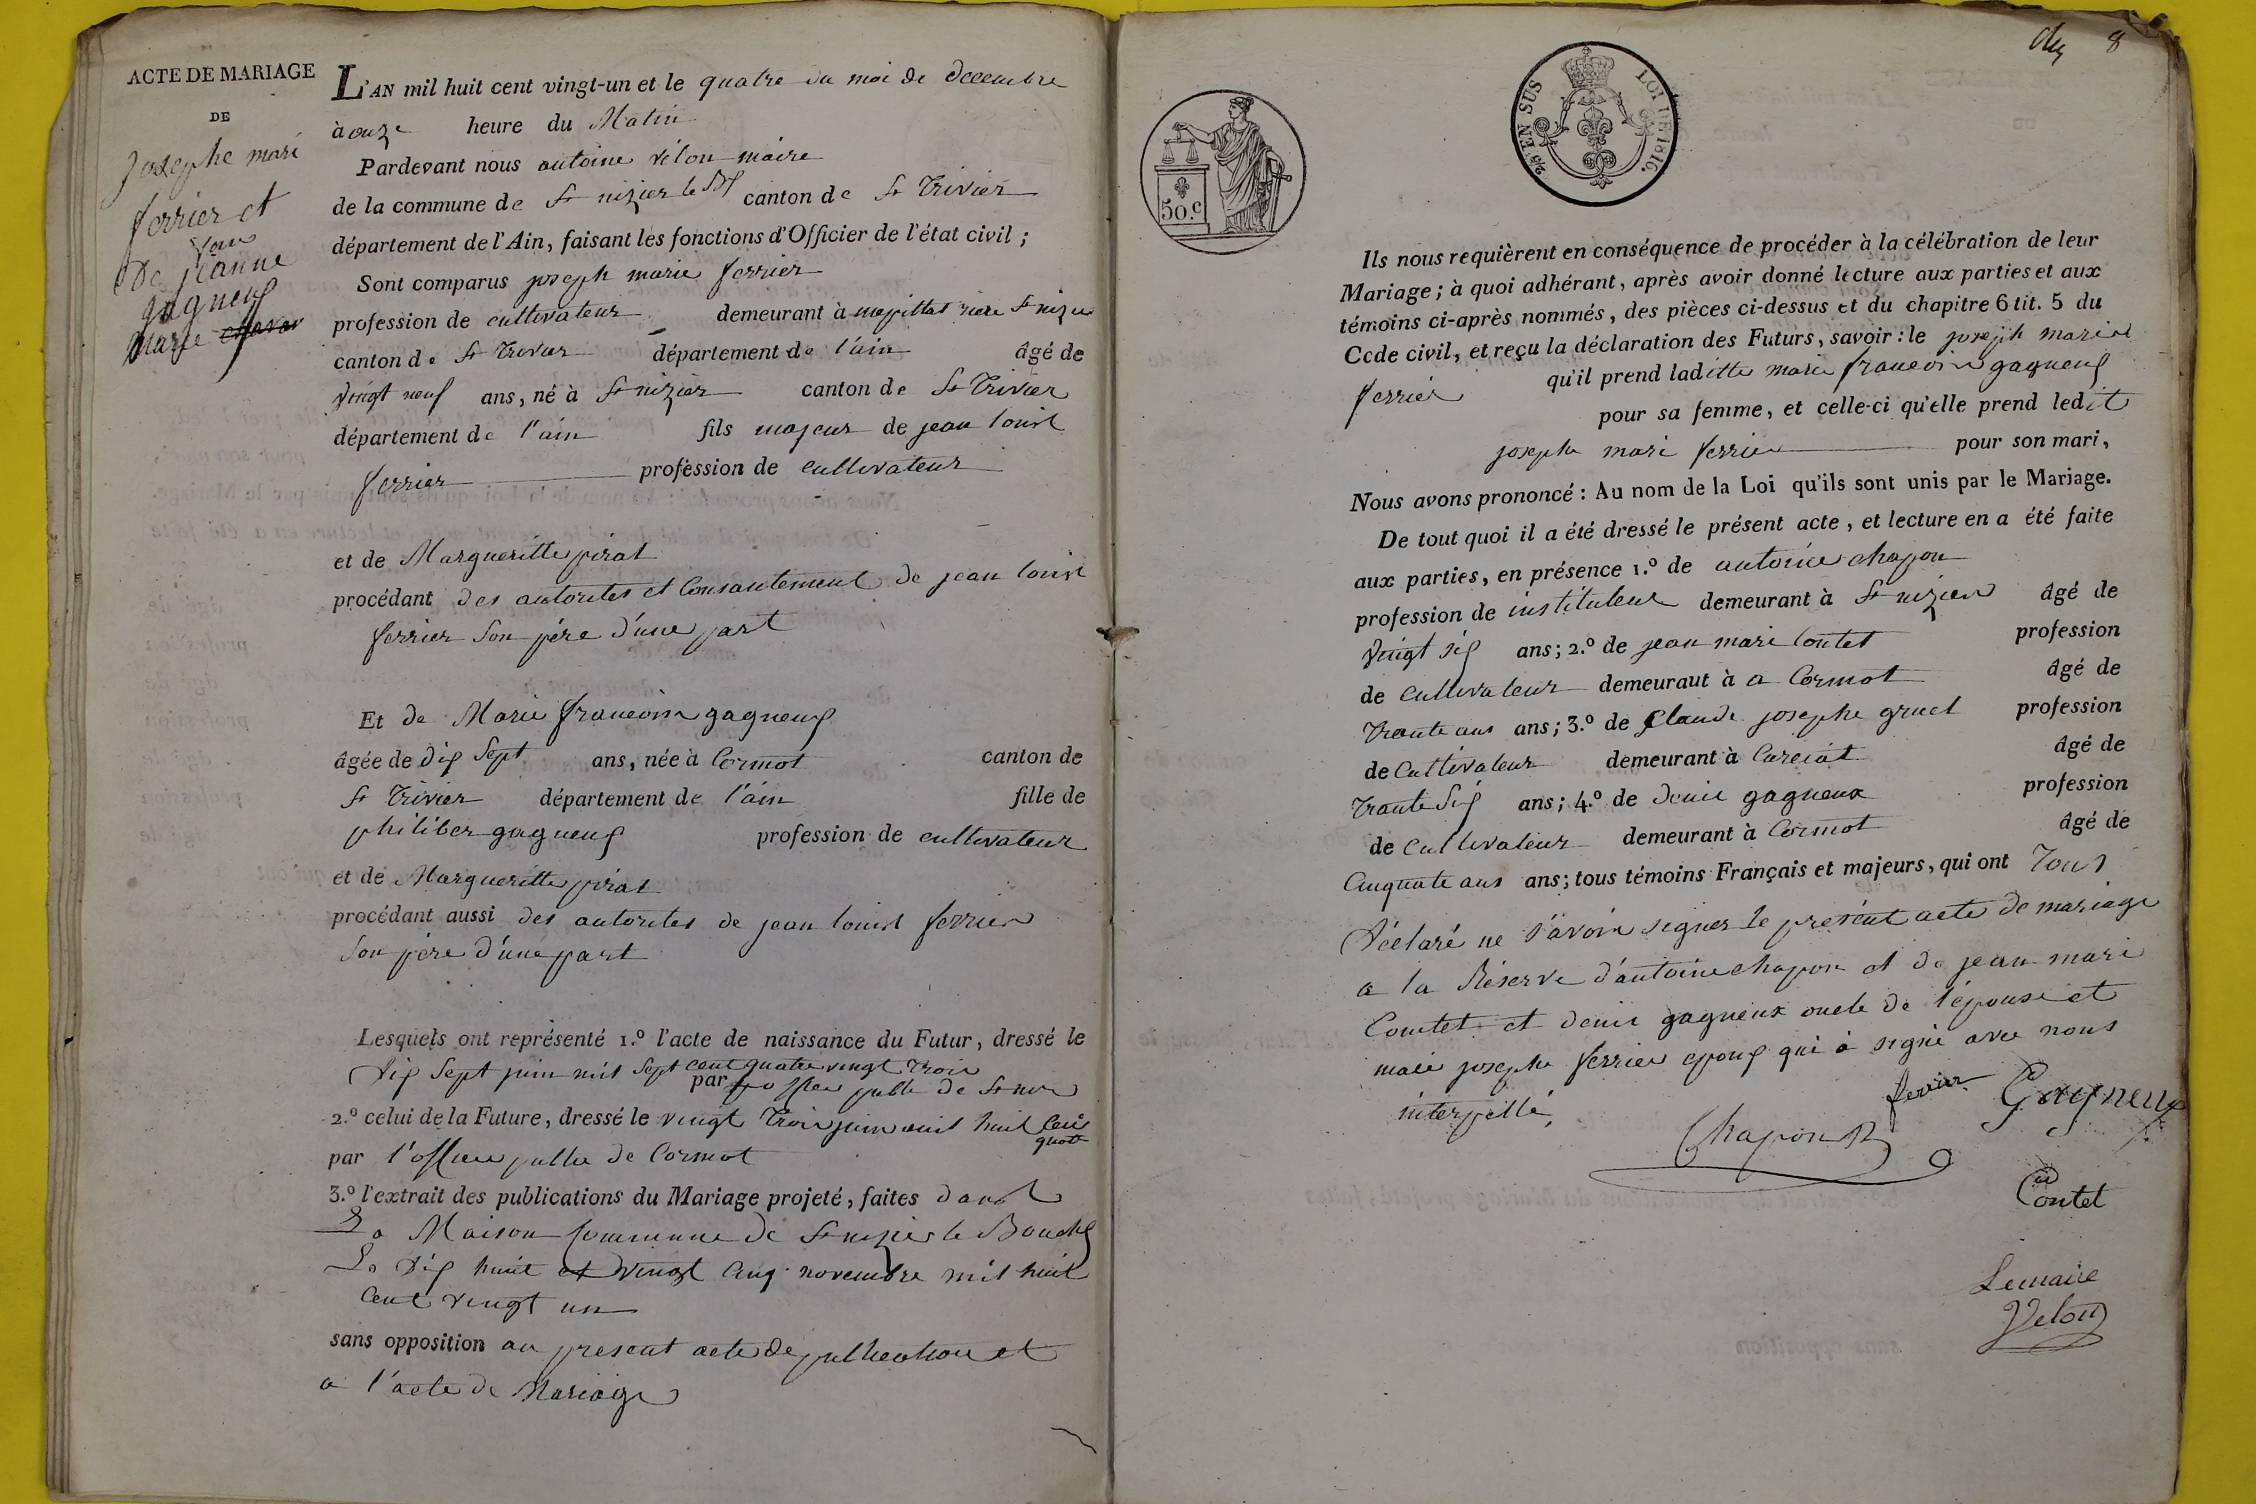 ACTE DE MARIAGE
DE
Josephe mari
ferrier et
De jeanne
gagneux
marie
L'AN mil huit cent vingt-un et le quatre du moi de decembre
à onze heure du Matin
Pardevant nous antoine vélon maire
de la commune de St nizier le Bf canton de St Trivier
département de l'Ain, faisant les fonctions d'Officier de l'état civil ;
Sont comparus joseph marie ferrier
profession de cultivateur demeurant à mepillat riere St nizier
canton de St Trivier département de l'ain âgé de
vingt neuf ans, né à St nizier canton de St Trivier
département de l'ain fils majeur de jean louis
ferrier profession de cultivateur
et de Margueritte pirat
procédant des autorites et Consantement de jean louis
ferrier son père d'une part
Et de Marie francoise gagneux
âgée de dix sept ans, née à Cormot canton de
St Trivier département de l'ain fille de
philiber gagneux profession de cultivateur
et de Margueritte pirat
procédant aussi des autorites de jean louis ferrier
son père d'une part
Lesquels ont représenté 1.º l'acte de naissance du Futur, dressé le
Dix sept juin mil sept cent quatre vingt trois
par publ de St
2.º celui de la Future, dressé le vingt trois juin mil huit cent
quatre
par l'officier public de Cormot
3.º l'extrait des publications du Mariage projeté, faites dans
La Maison Commune de St nizier le Bouchx
Le dix huit et vingt cinq novembre mil huit
cent vingt un
sans opposition au présent acte de publication et
a l'acte de Mariage
8
50.C
25 EN SUS
LOI DE 1816.
Ils nous requièrent en conséquence de procéder à la célébration de leur
Mariage ; à quoi adhérant, après avoir donné lecture aux parties et aux
témoins ci-après nommés, des pièces ci-dessus et du chapitre 6 tit. 5 du
Code civil, et reçu la déclaration des Futurs, savoir : le joseph marie
ferrier qu'il prend laditte marie francoise gagneux
pour sa femme, et celle-ci qu'elle prend ledit
josephe mari ferrier pour son mari,
Nous avons prononcé : Au nom de la Loi qu'ils sont unis par le Mariage.
De tout quoi il a été dressé le présent acte, et lecture en a été faite
aux parties, en présence 1.º de antoine chapon
profession de instituteur demeurant à St nizier âgé de
vingt six ans ; 2.º de jean mari Contet profession
de cultivateur demeurant à a Cormot âgé de
Trante ans ans ; 3.º de Claude josephe gruel profession
de Cultivateur demeurant à Curciat âgé de
Trante six ans ; 4.º de denis gagneux profession
de Cultivateur demeurant à Cormot âgé de
Cinquate ans ans ; tous témoins Français et majeurs, qui ont Tous
Déclaré ne savoir signer le présent acte de mariage
a la Réserve d'antoine chapon et de jean mari
Contet et denis gagneux oncle de l'épouse et
marie josephe ferrier epoux qui a signé avec nous
interpellé,
ferrier
Gagneux
Chapon
Contet
Lemaire
Velon